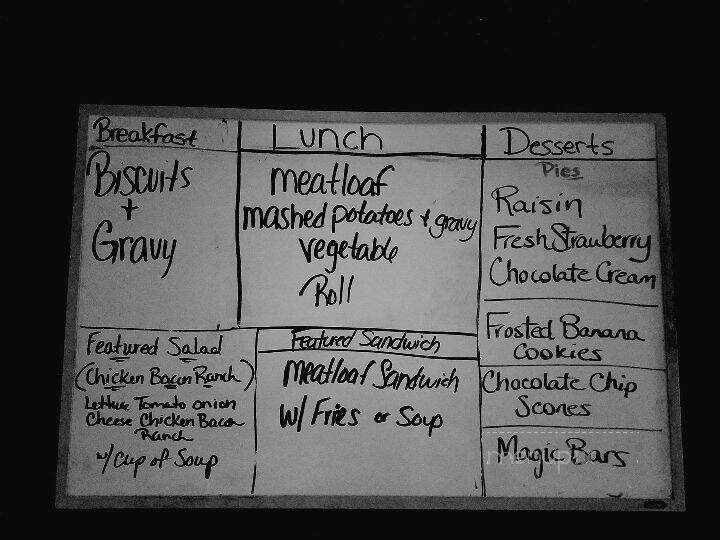 Breakfast
Biscuits
+
Gravy
Lunch
meatloaf
mashed potatoes + gravy
vegetable
Roll
Desserts
Pies
Raisin
Fresh Strawberry
Chocolate Cream
Frosted Banana
Cookies
Chocolate Chip
Scones
Magic Bars
Featured Salad
(Chicken Bacon Ranch)
Lettuce Tomato onion
Cheese Chicken Bacon
Ranch
w/ Cup of Soup
Featured Sandwich
Meatloaf Sandwich
w/ Fries or Soup